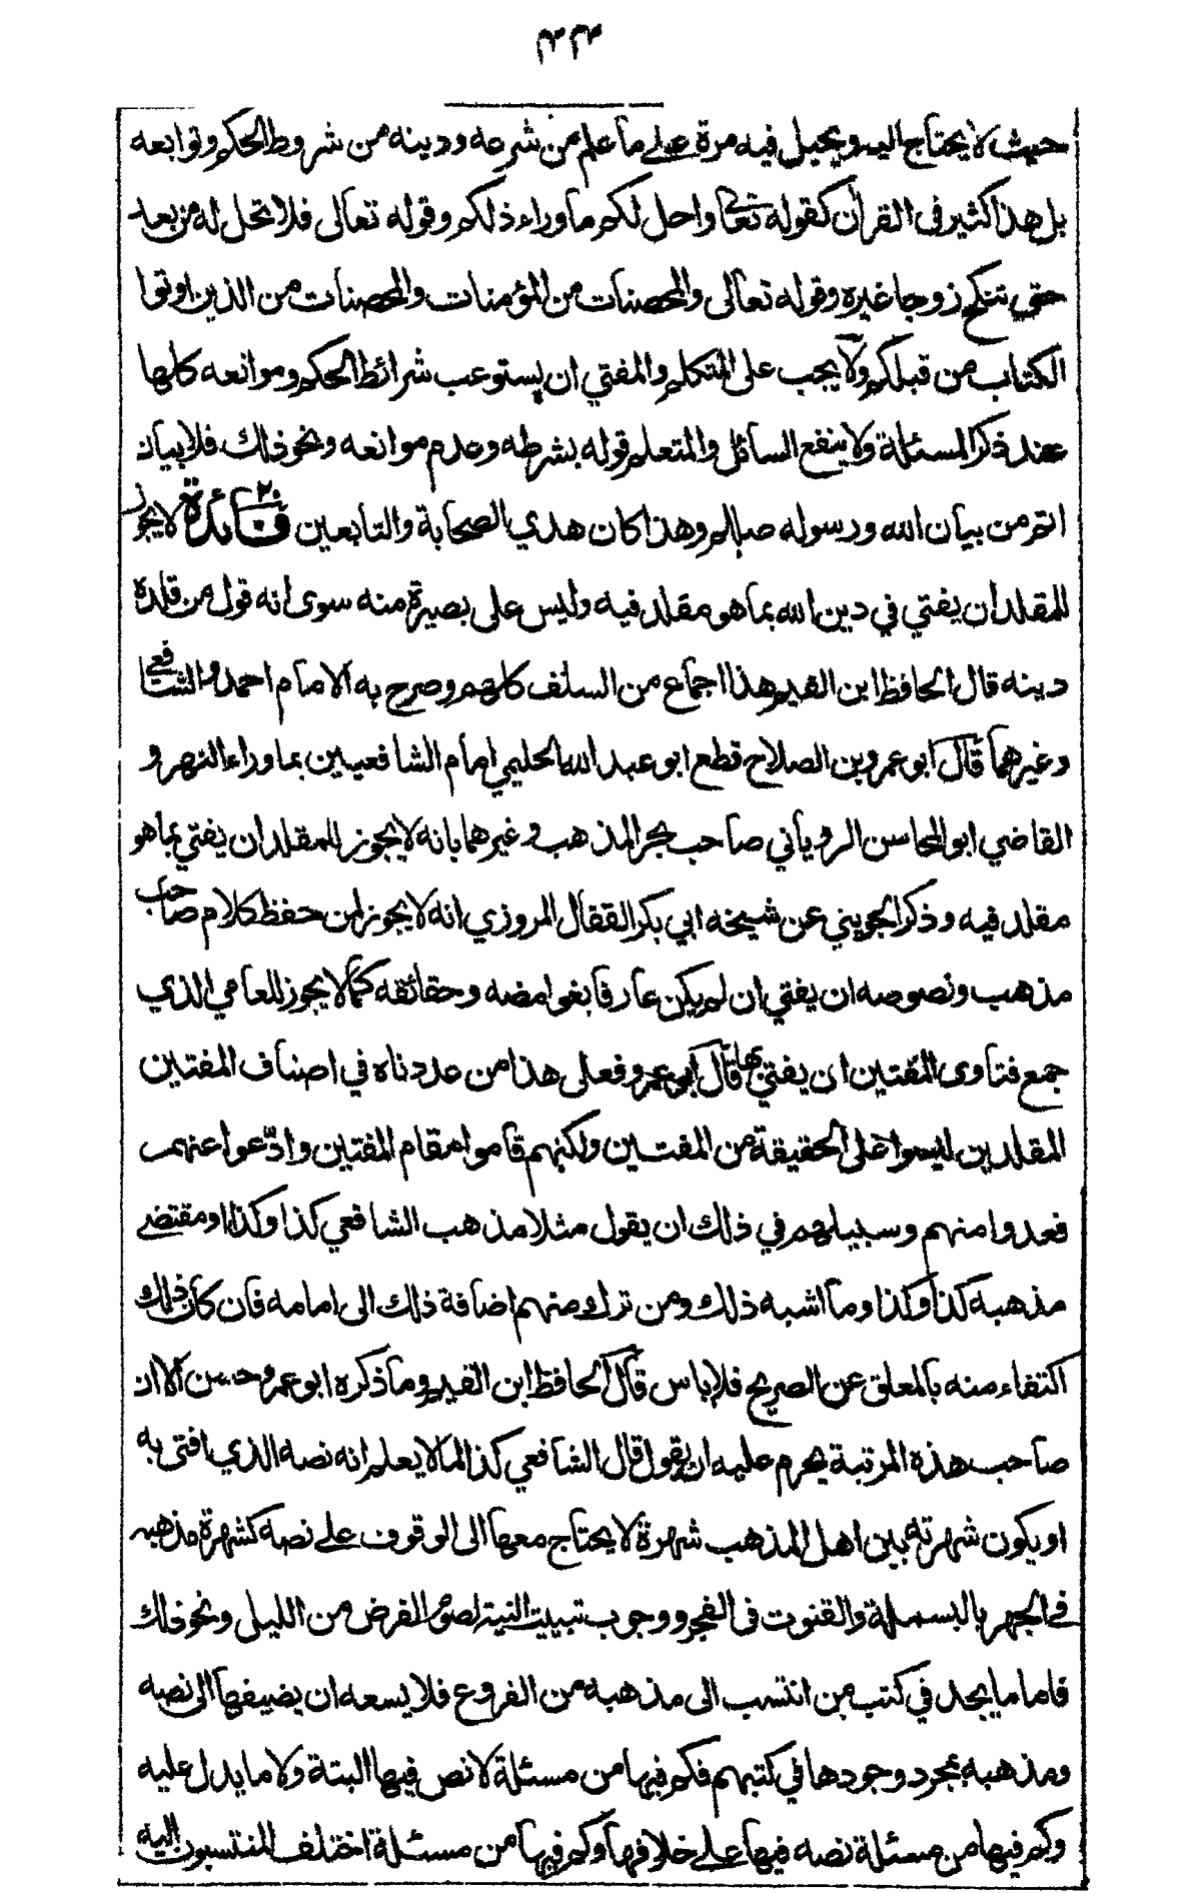 حيث لا يحتاج اليه ويحيل فيه مرة على ما علم من شرعه ودينه من شروط الحكم وتوابعه
بل هذا كثير في القرآن كقوله تعالى واحل لكم ما وراء ذلكم وقوله تعالى فلا تحل له من بعد
حتى تنكح زوجا غيره وقوله تعالى والمحصنات من المؤمنات والمحصنات من الذين اوتوا
الكتاب من قبلكم ولا يجب على المتكلم والمفتي ان يستوعب شرائط الحكم وموانعه كلها
عند ذكر المسئلة ولا ينفع السائل والمتعلم قوله بشرطه وعدم موانعه ونحو ذلك فلا بيان
اتم من بيان الله ورسوله صلى الله وهذا كان هدي الصحابة والتابعين فائدة ٢٠ لا يجوز
للمقلد ان يفتي في دين الله بما هو مقلد فيه وليس على بصيرة منه سوى انه قول من قلده
دينه قال الحافظ ابن القيم هذا اجماع من السلف كلهم وصرح به الامام احمد والشافعي
وغيرهما قال ابو عمرو بن الصلاح قطع ابو عبد الله الحليمي امام الشافعيين بما وراء النهر و
القاضي ابو المحاسن الروياني صاحب بحر المذهب وغيرهما بانه لا يجوز للمقلد ان يفتي بما هو
مقلد فيه وذكر الجويني عن شيخه ابي بكر القفال المروزي انه لا يجوز لمن حفظ كلام صاحب
مذهب ونصوصه ان يفتي ان لم يكن عارفا بغوامضه وحقائقه كما لا يجوز للعامي الذي
جمع فتاوى المفتين ان يفتي بها قال ابو عمرو فعلى هذا من عددناه في اصناف المفتين
المقلدين ليسوا على الحقيقة من المفتين ولكنهم قاموا مقام المفتين وادّعوا عنهم
فعدوا منهم وسبيلهم في ذلك ان يقول مثلا مذهب الشافعي كذا وكذا او مقتضى
مذهبه كذا وكذا وما اشبه ذلك ومن ترك منهم اضافة ذلك الى امامه فان كان ذلك
اكتفاء منه بالمعلق عن الصريح فلا باس قال الحافظ ابن القيم وما ذكره ابو عمرو حسن الا ان
صاحب هذه المرتبة يحرم عليه ان يقول قال الشافعي كذا لما لا يعلم انه نصه الذي افتى به
او يكون شهرته بين اهل المذهب شهرة لا يحتاج معها الى الوقوف على نصه كشهرة مذهبه
في الجهر بالبسملة والقنوت في الفجر ووجوب تبييت النية لصوم الفرض من الليل ونحو ذلك
فاما ما يجد في كتب من انتسب الى مذهبه من الفروع فلا يسعه ان يضيفها الى نصه
ومذهبه بمجرد وجودها في كتبهم فكم فيها من مسئلة لا نص فيها البتة ولا ما يدل عليه
وكم فيها من مسئلة نصه فيها على خلافها وكم فيها من مسئلة اختلف المنتسبون اليه